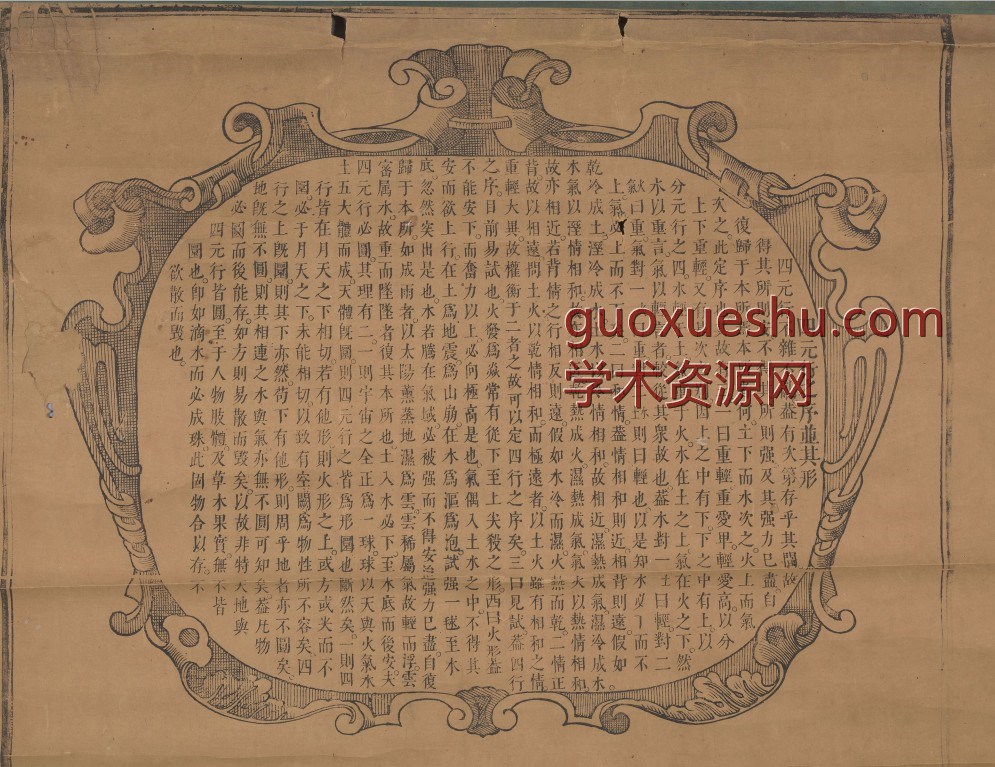 guoxueshu.com
学术资源网
元行之序並其形
四元行雜蓋有次第存乎其間故
得其所則不所則强及其强力已盡自
復歸于本所本何土下而水次之火上而氣
次之此定序也故一曰重輕重愛卑輕愛高以分
上下重輕又有次四上之中有下下之中有上以
分元行之四水輕土火水在土之上氣在火之下然
水以重言氣以輕者從其衆故也蓋水對一土曰輕對二
氣火曰重氣對一火重則曰輕也以是知水必下而不
上氣必上而不下二曰和情蓋情相和則近相背則遠假如
乾冷成土溼冷成水土水情相和故相近濕熱成氣濕冷成水
水氣以溼情相和故相熱成火濕熱成氣氣火以熱情相和
故亦相近若背情之行相反則遠假如水冷而濕火熱而乾二情正
背故以相遠問土火以乾情相和而極遠者以土火雖有相和之情
重輕大異故權衡于二者之故可以定四行之序矣三曰見試蓋四行
之序目前易試也火發爲焱常有從下至上尖殺之形西曰火形蓋
不能安下而奮力以上必向極高是也氣偶入土水之中不得其
安而欲上行在土爲地震爲山崩在水爲漚爲泡試强一毬至水
底忽然突出是也水若騰在氣域必被强而不得安迨强力已盡自復
歸于本所如成雨者以太陽薰蒸地濕爲雲雲稀屬氣故輕而浮雲
密屬水故重而墜墜者復其本所也土入水必下至水底而後安夫
四元行必圓其理有二一則宇宙之全正爲一球球以天與火氣水
土五大體而成天體旣圓則四元行之皆爲形圓也斷然矣一則四
行皆在月天之下相切若有他形則火形之上或方或尖而不
圓必于月天之下未能相切以致有空闕爲物性所不容矣四
行之上旣圓則其下亦然苟下有他形則周乎地者亦不圓矣
地旣無不圓則其相連之水與氣亦無不圓可知矣蓋凡物
必圓而後能存如方則易散而毀矣以故非特天地與
四元行皆圓至于人物肢體及草木果實無不皆
圓也卽如滴水而必成珠此固物合以存不
欲散而毀也